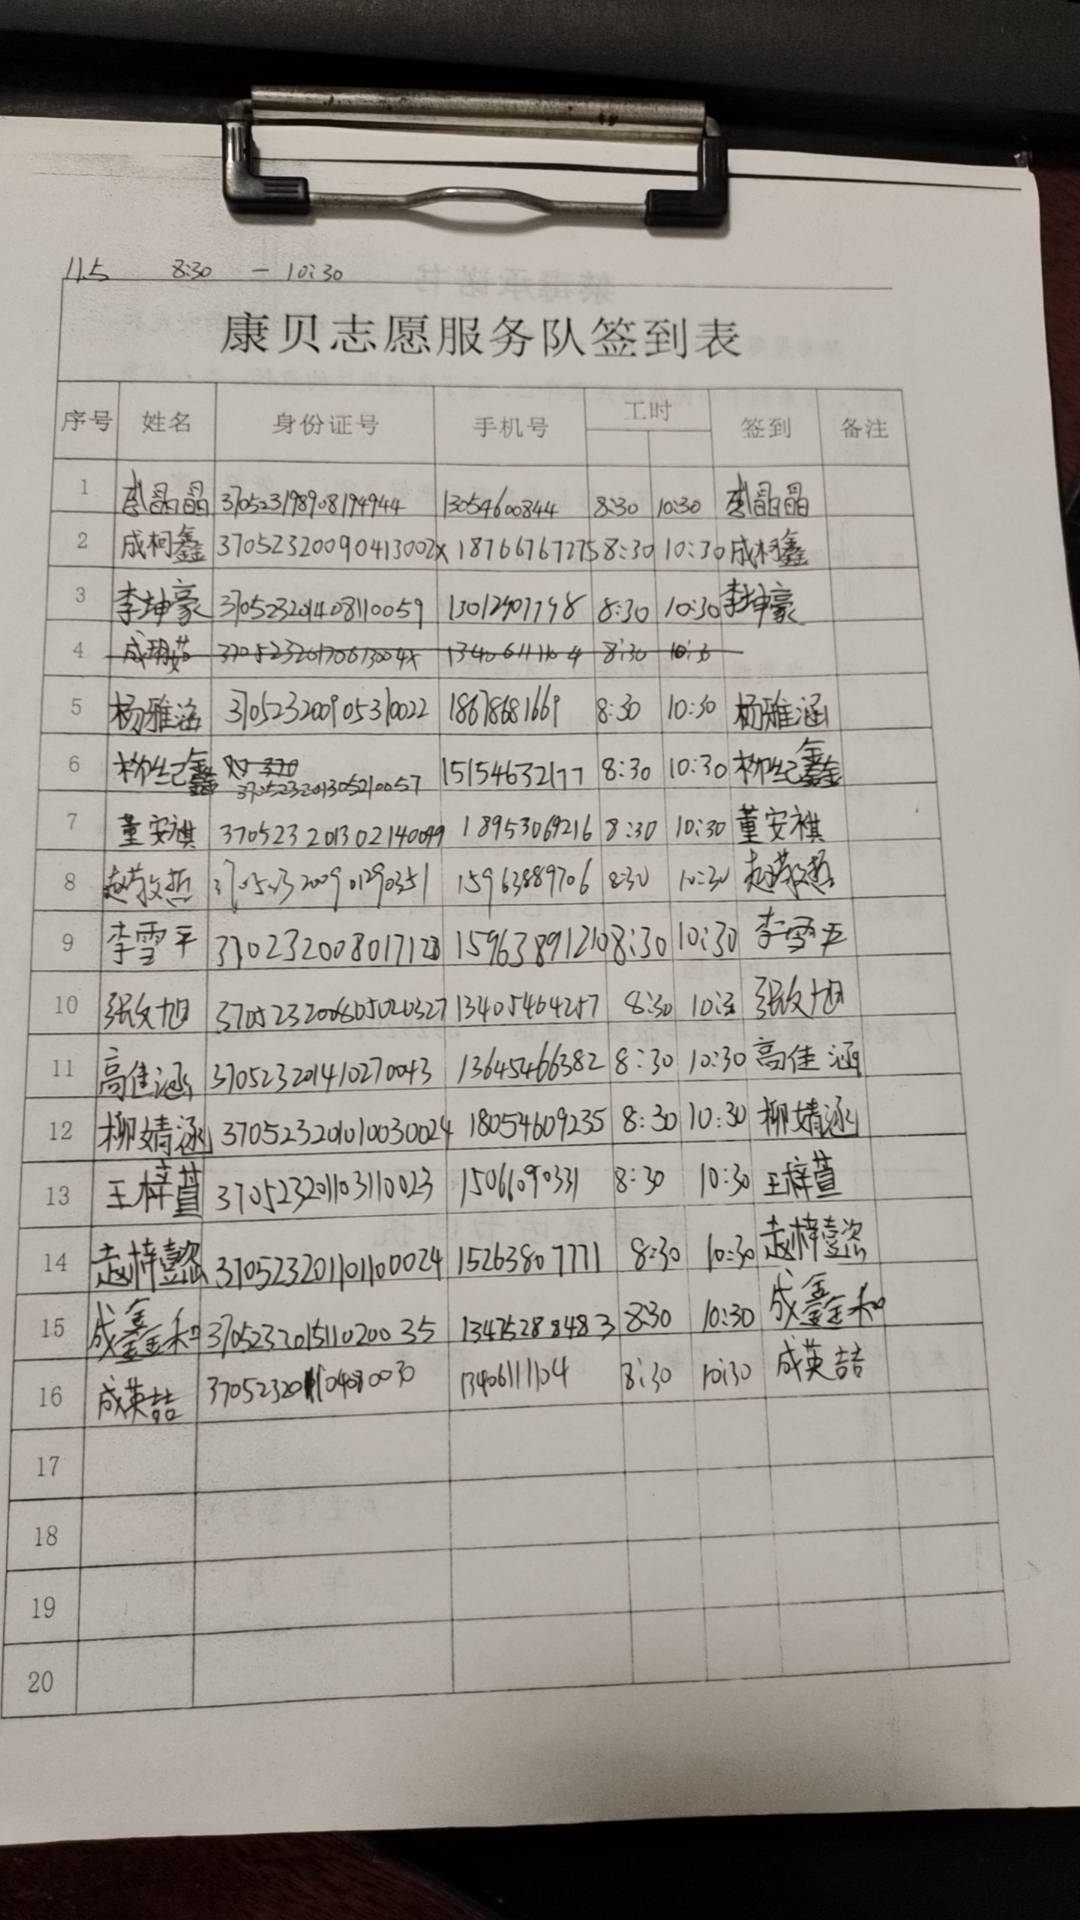 11.5 8:30 — 10:30
康贝志愿服务队签到表
序号 姓名 身份证号 手机号 工时 签到 备注
1 李晶晶 370523198908194944 13054600844 8:30 10:30 李晶晶
2 成柯鑫 37052320090413002x 18766767275 8:30 10:30 成柯鑫
3 李坤豪 370523201408110059 13012907798 8:30 10:30 李坤豪
4 8:30
5 杨雅涵 370523200905310022 18678681669 8:30 10:30 杨雅涵
6 柳纪鑫 370523201305210057 15154632177 8:30 10:30 柳纪鑫
7 董安祺 370523201302140049 18953069216 8:30 10:30 董安祺
8 赵敬哲 15963889706 8:30 10:30 赵敬哲
9 李雪平 15963891210 8:30 10:30 李雪平
10 张文旭 13405464257 8:30 张文旭
11 高佳涵 370523201410270043 13645466382 8:30 10:30 高佳涵
12 柳婧涵 370523201010030024 18054609235 8:30 10:30 柳婧涵
13 王梓萱 370523201103110023 1506690331 8:30 10:30 王梓萱
14 赵梓懿 370523201101100024 15263807771 8:30 10:30 赵梓懿
15 成鑫和 370523201511020035 13475288483 8:30 10:30 成鑫和
16 成英喆 13406111104 8:30 10:30 成英喆
17
18
19
20